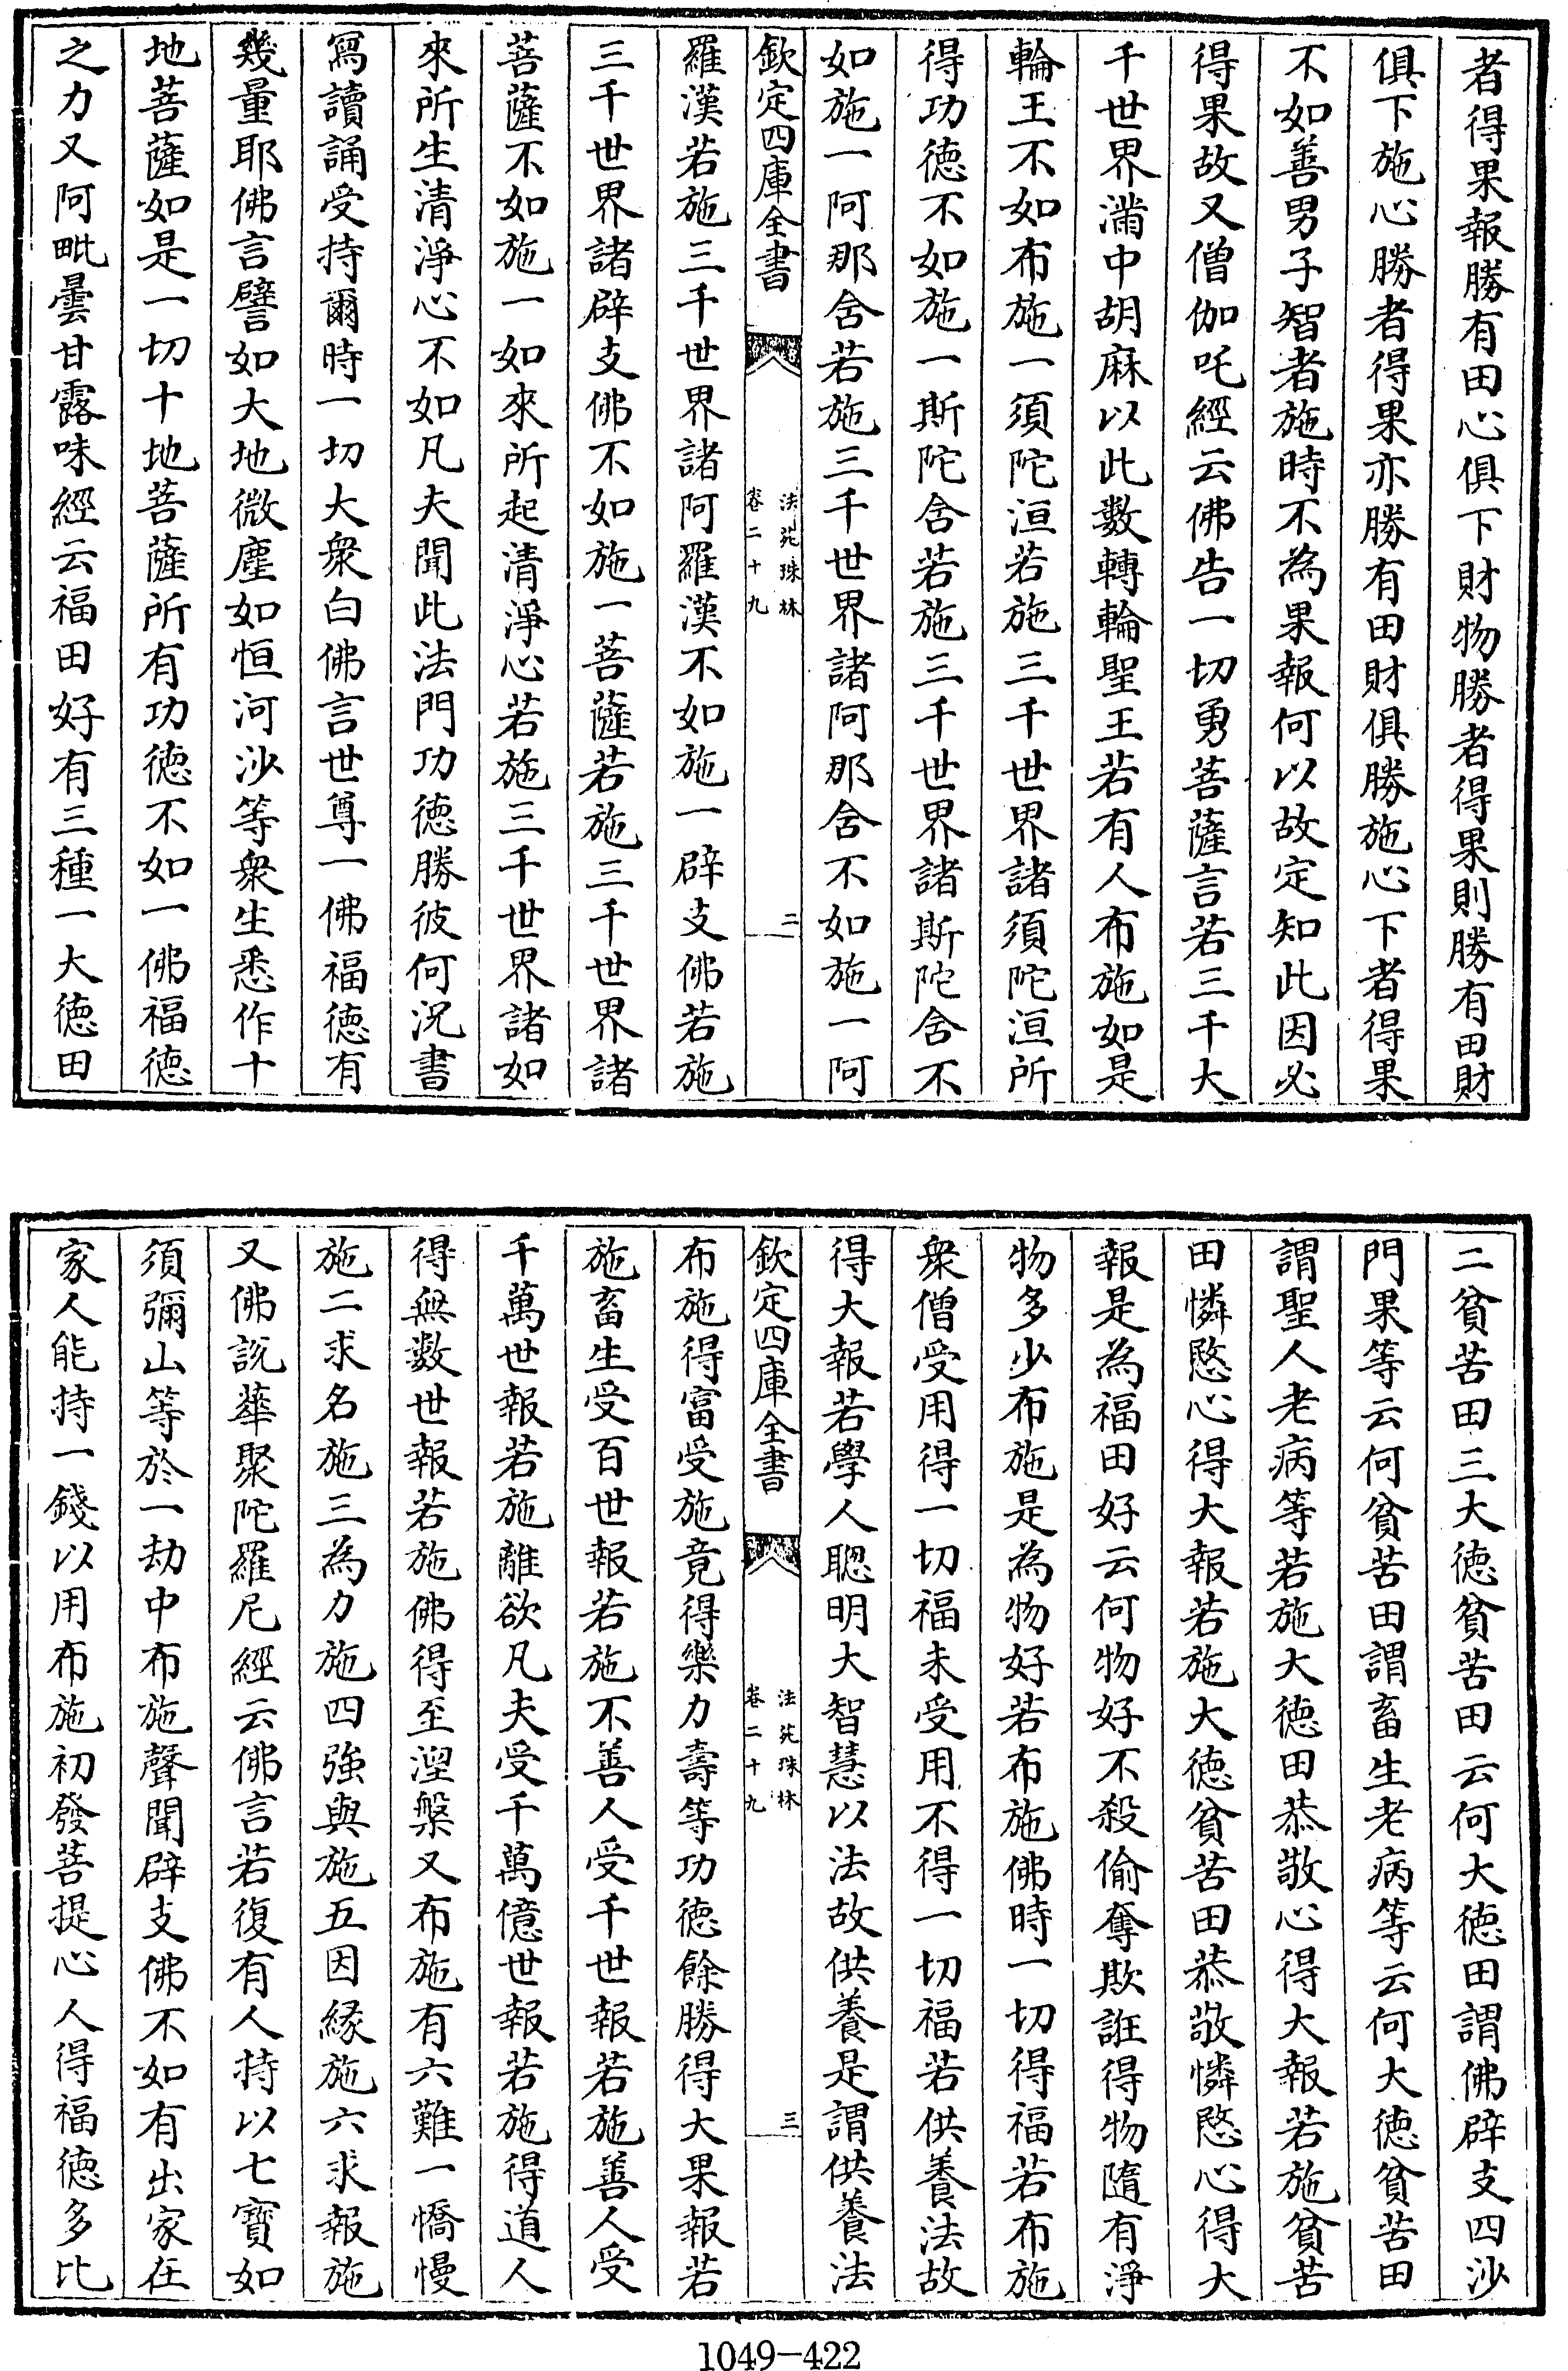 者得果報勝有田心俱下財物勝者得果則勝有田財
俱下施心勝者得果亦勝有田財俱勝施心下者得果
不如善男子智者施時不為果報何以故定知此因必
得果故又僧伽吒經云佛告一切勇菩薩言若三千大
千世界滿中胡麻以此數轉輪聖王若有人布施如是
輪王不如布施一須陀洹若施三千世界諸須陀洹所
得功德不如施一斯陀含若施三千世界諸斯陀含不
如施一阿那含若施三千世界諸阿那含不如施一阿
欽定四庫全書
法苑珠林
卷二十九
二
羅漢若施三千世界諸阿羅漢不如施一辟支佛若施
三千世界諸辟支佛不如施一菩薩若施三千世界諸
菩薩不如施一如來所起清淨心若施三千世界諸如
來所生清淨心不如凡夫聞此法門功德勝彼何況書
寫讀誦受持爾時一切大衆白佛言世尊一佛福德有
幾量耶佛言譬如大地微塵如恒河沙等衆生悉作十
地菩薩如是一切十地菩薩所有功德不如一佛福德
之力又阿毗曇甘露味經云福田好有三種一大德田
二貧苦田三大德貧苦田云何大德田謂佛辟支四沙
門果等云何貧苦田謂畜生老病等云何大德貧苦田
謂聖人老病等若施大德田恭敬心得大報若施貧苦
田憐愍心得大報若施大德貧苦田恭敬憐愍心得大
報是為福田好云何物好不殺偷奪欺誑得物隨有淨
物多少布施是為物好若布施佛時一切得福若布施
衆僧受用得一切福未受用不得一切福若供養法故
得大報若學人聰明大智慧以法故供養是謂供養法
欽定四庫全書
法苑珠林
卷二十九
三
布施得富受施竟得樂力壽等功德餘勝得大果報若
施畜生受百世報若施不善人受千世報若施善人受
千萬世報若施離欲凡夫受千萬億世報若施得道人
得無數世報若施佛得至涅槃又布施有六難一憍慢
施二求名施三為力施四強與施五因緣施六求報施
又佛說華聚陀羅尼經云佛言若復有人持以七寶如
須彌山等於一劫中布施聲聞辟支佛不如有出家在
家人能持一錢以用布施初發菩提心人得福德多比
1049-422